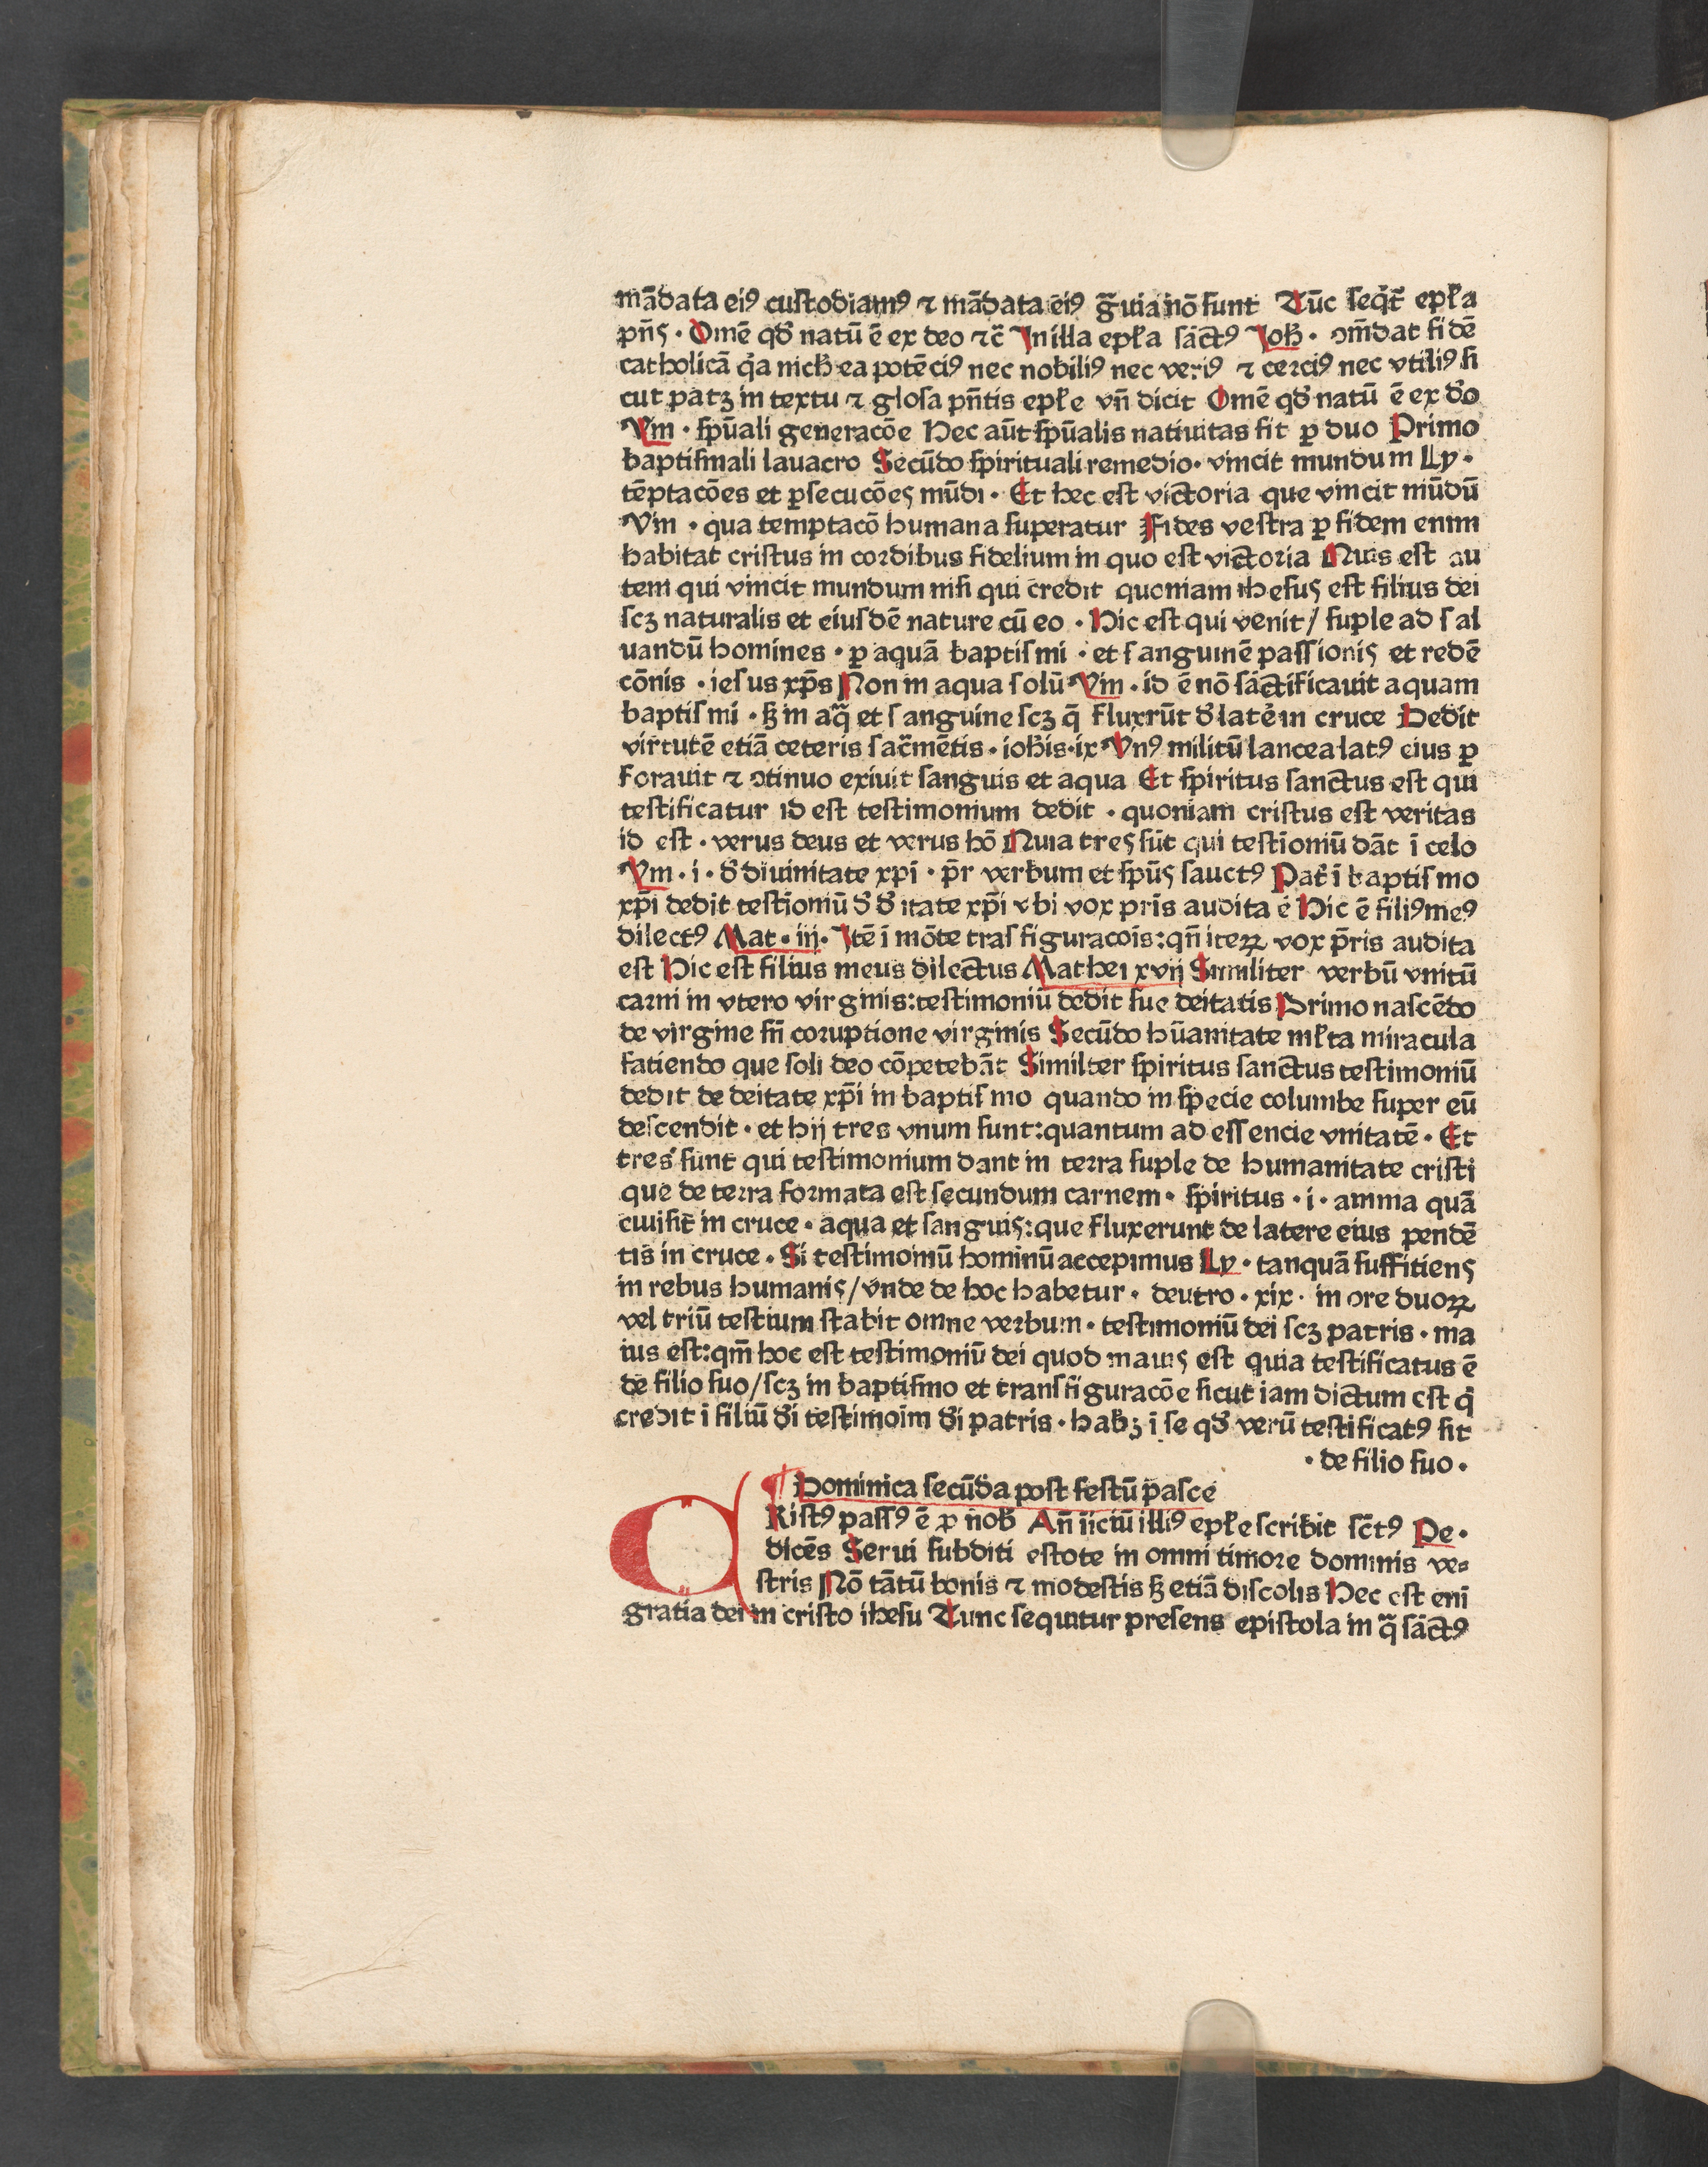 mādata eiꝰ custodiamꝰ ⁊ mādata eiꝰ g̃uia nō sunt Tūc seq̄t̃ ep̃la
pn̄s · Omē qd̛ natū ē ex deo ⁊c̃ In illa ep̃la sāctꝰ Joh̃ · ↄm̄dat fidē
catholicā q̛a nich̛ ea potēciꝰ nec nobiliꝰ nec veriꝰ ⁊ cerciꝰ nec vtiliꝰ si
cut patꝫ in textu ⁊ glosa pn̄tis ep̃le vn̄ dicit Omē qd̛ natū ē ex d̛o
Vm · sp̄uali generacōe Hec aūt sp̄ualis natiuitas fit ꝑ duo Primo
baptismali lauacro Secūdo spirituali remedio · vincit mundum Ly ·
tēptacōes et ꝑsecucōes mūdi · Et hec est victoria que vincit mūdū
Vm · qua temptacō humana superatur Fides vestra ꝑ fidem enim
habitat cristus in cordibus fidelium in quo est victoria Quis est au
tem qui vincit mundum nisi qui credit quoniam ihesus est filius dei
scꝫ naturalis et eiusdē nature cū eo · Hic est qui venit / suple ad sal
uandū homines · ꝑ aquā baptismi · et sanguinē passionis et redē
cōnis · iesus xp̄s Non in aqua solū Vm · id ē nō sāctificauit aquam
baptismi · sꝫ in aq̃ et sanguine scꝫ q̄ fluxrūt d̛ late̛ in cruce Dedit
virtutē etiā ceteris sac̃mētis · ioh̃is · ix Vnꝰ militū lancea latꝰ eius ꝑ
forauit ⁊ ↄtinuo exiuit sanguis et aqua Et spiritus sanctus est qui
testificatur id est testimonium dedit · quoniam cristus est veritas
id est · verus deus et verus hō Quia tres sūt qui testīoniū dāt ī celo
Vm · i · d̛ diuinitate xpī · p̄r verbum et sp̄us sauctꝰ Pat̛ ī baptismo
xp̄i dedit testīoniū d̛ d̛itate xp̄i vbi vox pr̄is audita ē Hic ē filiꝰ meꝰ
dilectꝰ Mat · iij · Itē ī mōte trasfiguracoīs : qn̄ iteꝝ vox p̄ris audita
est Hic est filius meus dilectus Mathei xvij Similiter verbū vnitū
carni in vtero virginis : testimoniū dedit sue deitatis Primo nascēdo
de virgine sn̄ coruptione virginis Secūdo hūanitate ml̃ta miracula
fatiendo que soli deo cōpetebāt Similter spiritus sanctus testimoniū
dedit de deitate xp̄i in baptismo quando in specie columbe super eū
descendit · et hij tres vnum sunt : quantum ad essencie vnitatē · Et
tres sunt qui testimonium dant in terra suple de humanitate cristi
que de terra formata est secundum carnem · spiritus · i · amma quā
emisit̄ in cruce · aqua et sanguis : que fluxerunt de latere eius pendē
tis in cruce · Si testimoniū hominū accepimus Ly · tanquā suffitiens
in rebus humanis / vnde de hoc habetur · deutro · xix · in ore duoꝝ
vel triū testium stabit omne verbum · testimoniū dei scꝫ patris · ma
ius est : qm̄ hoc est testimoniū dei quod maius est quia testificatus ē
de filio suo / scꝫ in baptismo et transfiguracōe sicut iam dictum est q̛
credit ī filiū d̛i testimoīm d̛i patris · habꝫ ī se qd̛ verū testificatꝰ sit
· de filio suo ·
¶ Dominica secūda post festū pasce
CRistꝰ passꝰ ē ꝓ nob̛ An̄ īiciū illiꝰ ep̃le scribit sc̄tꝰ Pe ·
dicēs Serui subditi estote in omni timore dominis ve⸗
stris Nō tātū bonis ⁊ modestis sꝫ etiā discolis Hec est enī
gratia dei in cristo ihesu Tunc sequitur presens epistola in q̃ sāctꝰ